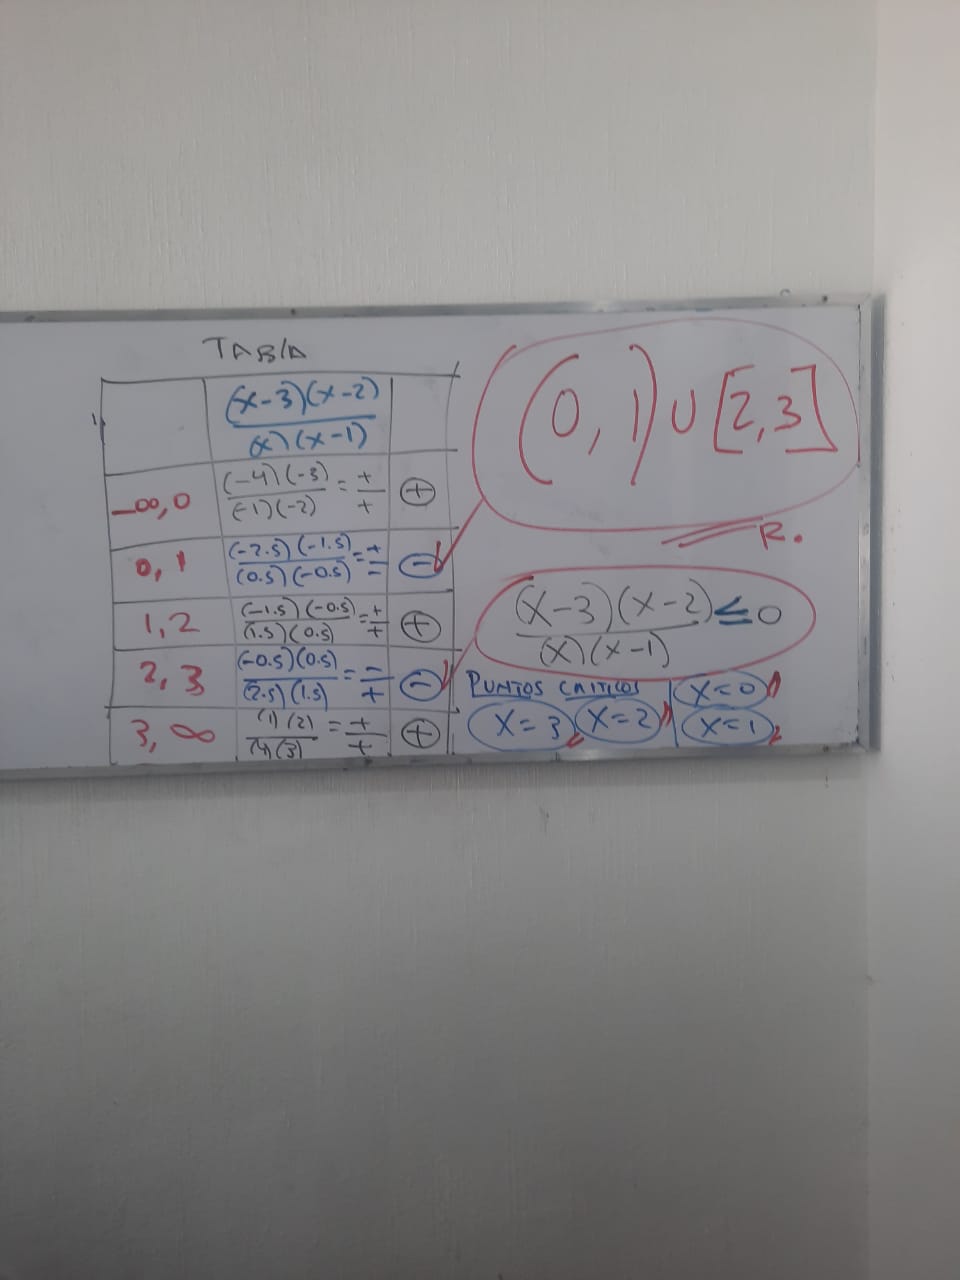 TABLA
(x-3)(x-2)
(x)(x-1)
-∞,0 (-4)(-3) / (-1)(-2) = + / + ⊕
0,1 (-2.5)(-1.5) / (0.5)(-0.5) = + / - ⊖
1,2 (-1.5)(-0.5) / (1.5)(0.5) = + / + ⊕
2,3 (-0.5)(0.5) / (2.5)(1.5) = - / + ⊖
3,∞ (1)(2) / (4)(3) = + / + ⊕
(0,1) U [2,3]
R.
(x-3)(x-2) / (x)(x-1) ≤ 0
PUNTOS CRITICOS
X=3 X=2
X=0
X=1